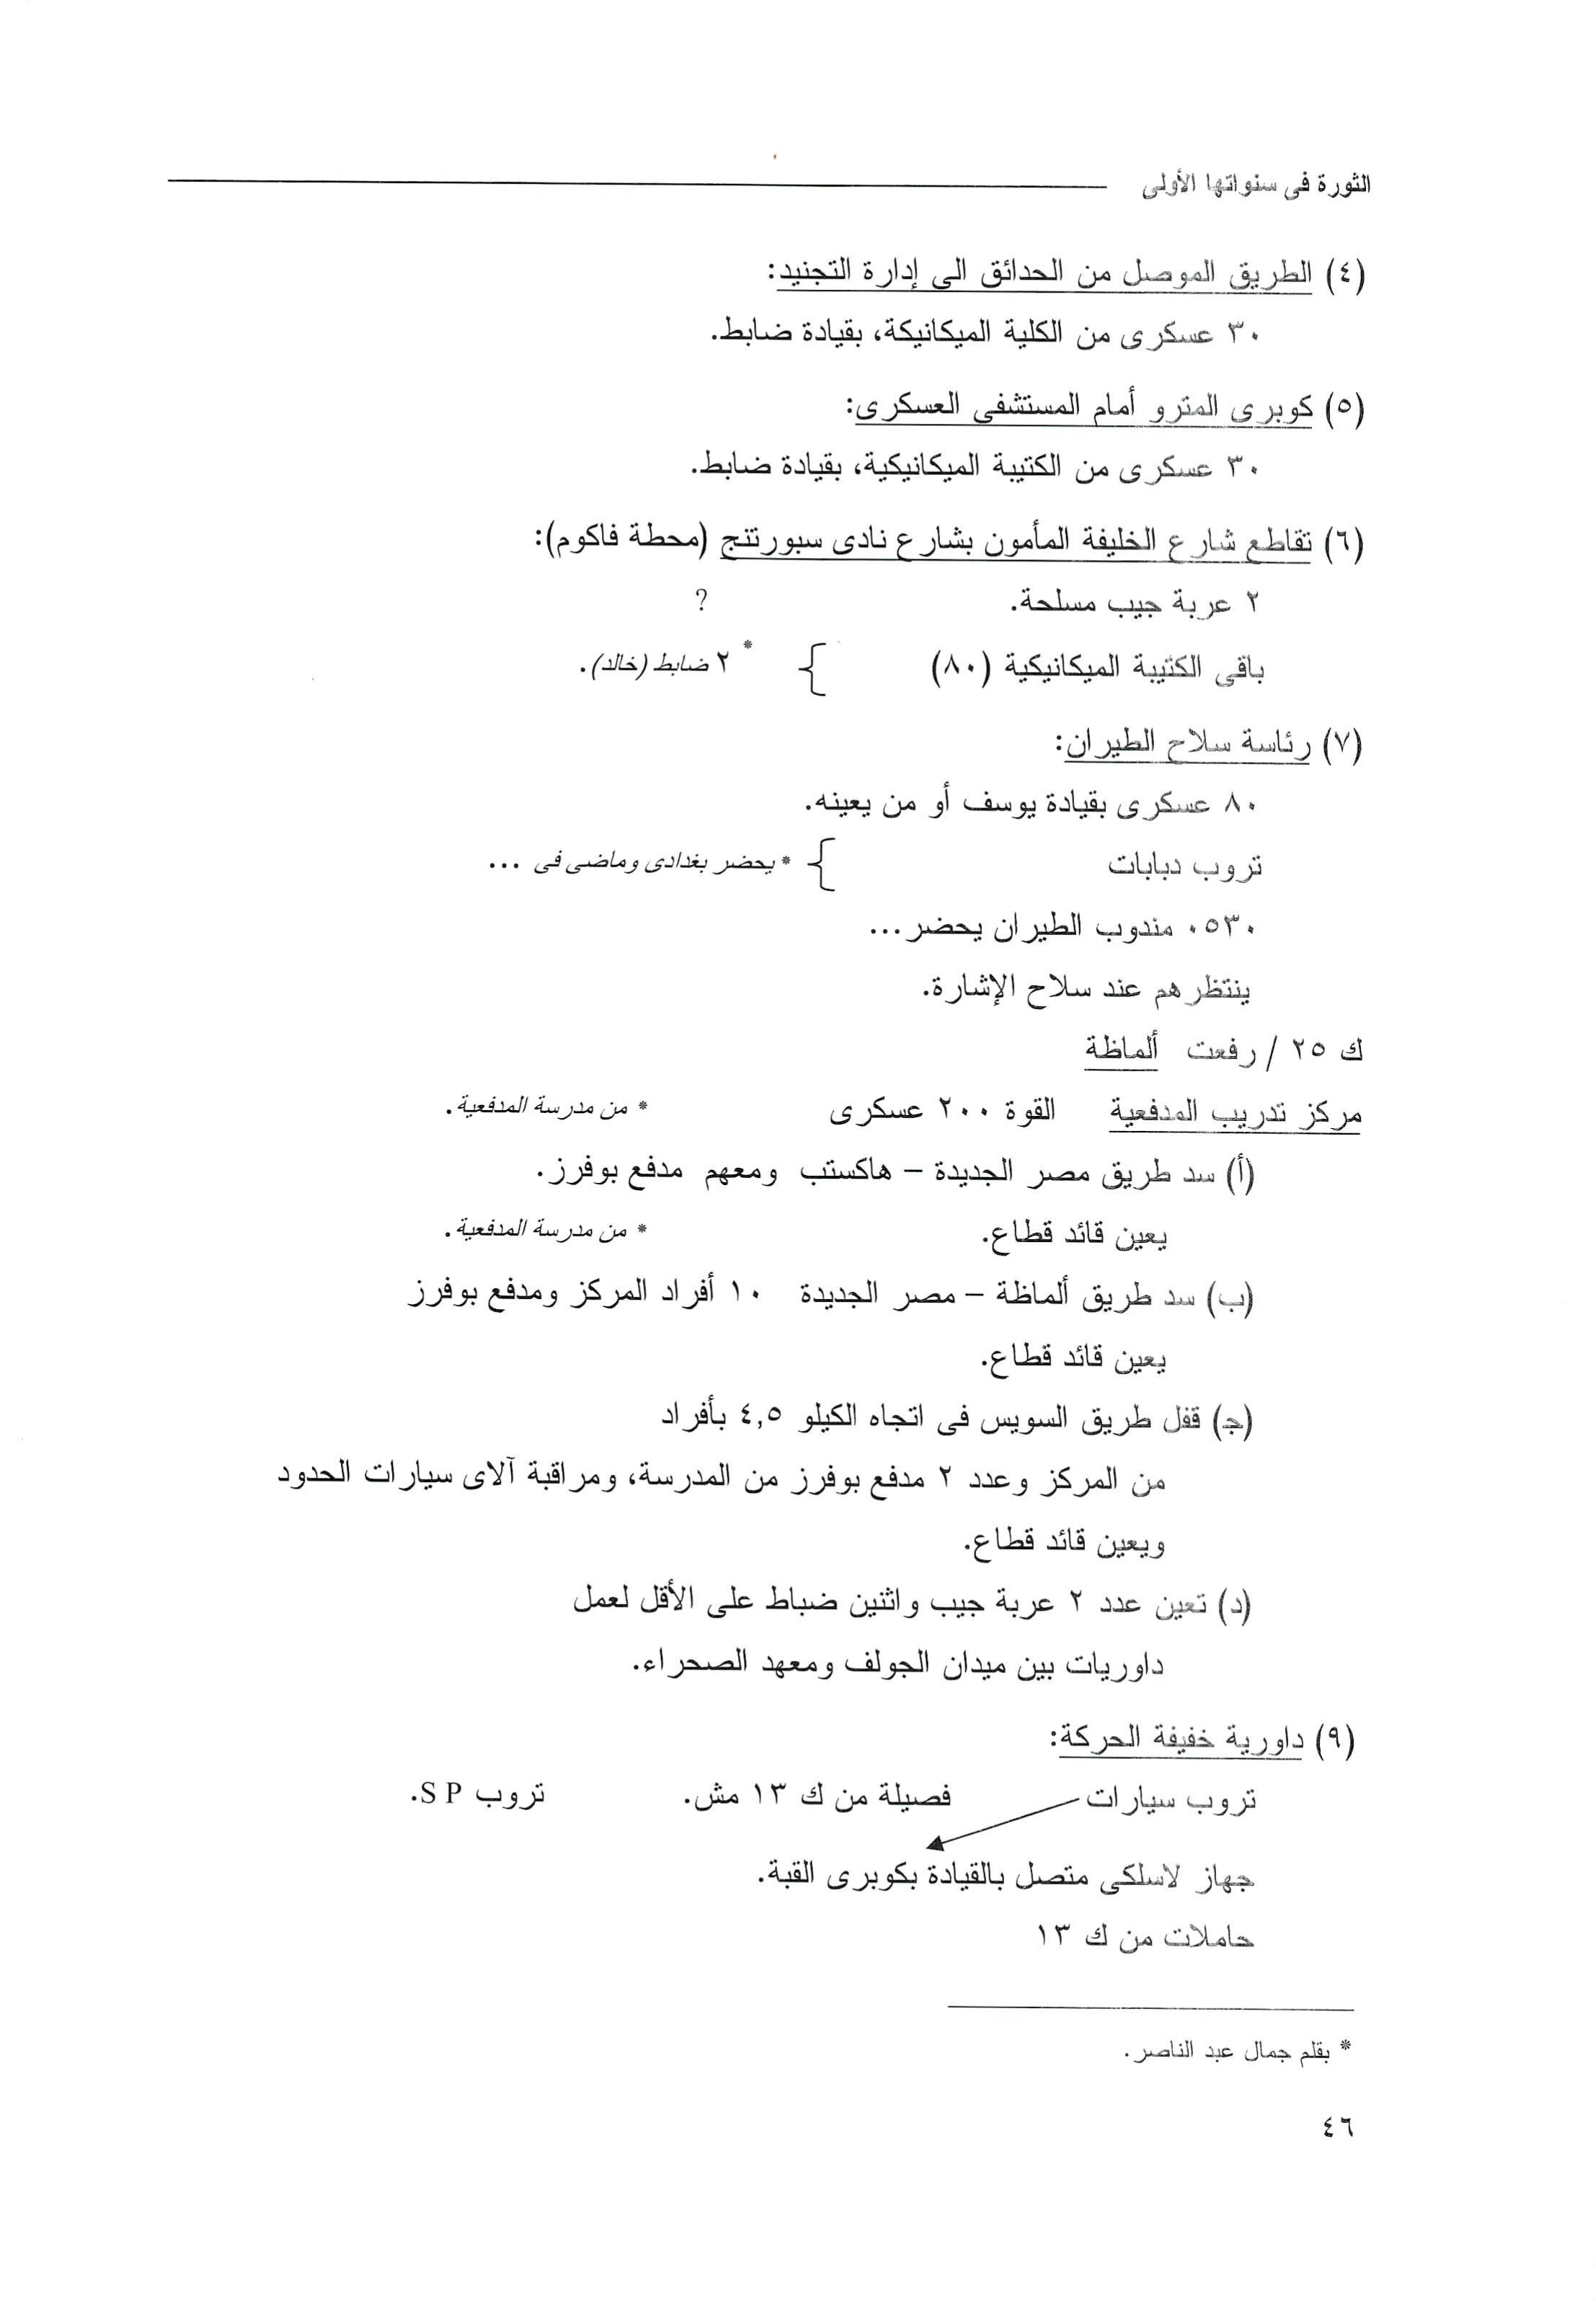 الثورة فى سنواتها الأولى
(٤) الطريق الموصل من الحدائق الى إدارة التجنيد:
٣٠ عسكرى من الكلية الميكانيكة، بقيادة ضابط.
(٥) كوبرى المترو أمام المستشفى العسكرى:
٣٠ عسكرى من الكتيبة الميكانيكية، بقيادة ضابط.
(٦) تقاطع شارع الخليفة المأمون بشارع نادى سبورتنج (محطة فاكوم):
٢ عربة جيب مسلحة. ?
باقى الكتيبة الميكانيكية (٨٠) } * ٢ ضابط (خالد).
(٧) رئاسة سلاح الطيران:
٨٠ عسكرى بقيادة يوسف أو من يعينه.
تروب دبابات } * يحضر بغدادى وماضى فى ...
٠٥٣٠ مندوب الطيران يحضر...
ينتظرهم عند سلاح الإشارة.
ك ٢٥ / رفعت ألماظة
مركز تدريب المدفعية القوة ٢٠٠ عسكرى * من مدرسة المدفعية.
(أ) سد طريق مصر الجديدة – هاكستب ومعهم مدفع بوفرز.
يعين قائد قطاع. * من مدرسة المدفعية.
(ب) سد طريق ألماظة – مصر الجديدة ١٠ أفراد المركز ومدفع بوفرز
يعين قائد قطاع.
(ج) قفل طريق السويس فى اتجاه الكيلو ٤,٥ بأفراد
من المركز وعدد ٢ مدفع بوفرز من المدرسة، ومراقبة آلاى سيارات الحدود
ويعين قائد قطاع.
(د) تعين عدد ٢ عربة جيب واثنين ضباط على الأقل لعمل
داوريات بين ميدان الجولف ومعهد الصحراء.
(٩) داورية خفيفة الحركة:
تروب سيارات فصيلة من ك ١٣ مش. تروب S P.
جهاز لاسلكى متصل بالقيادة بكوبرى القبة.
حاملات من ك ١٣
* بقلم جمال عبد الناصر.
٤٦